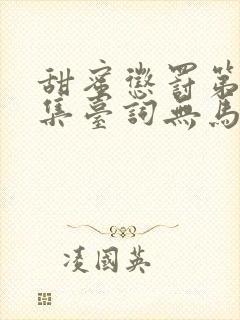 甜蜜懲罰第
集臺詞無馬
凌國英